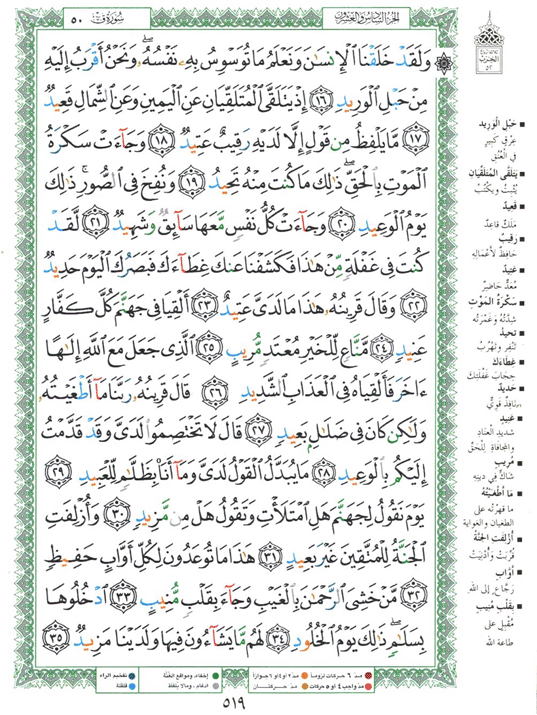 سُورَةُ قٓ ٥٠
الجُزءُ السَّادِسُ وَالعِشرُون
وَلَقَدْ خَلَقْنَا ٱلْإِنسَٰنَ وَنَعْلَمُ مَا تُوَسْوِسُ بِهِۦ نَفْسُهُۥ ۖ وَنَحْنُ أَقْرَبُ إِلَيْهِ
مِنْ حَبْلِ ٱلْوَرِيدِ ١٦ إِذْ يَتَلَقَّى ٱلْمُتَلَقِّيَانِ عَنِ ٱلْيَمِينِ وَعَنِ ٱلشِّمَالِ قَعِيدٌ
١٧ مَّا يَلْفِظُ مِن قَوْلٍ إِلَّا لَدَيْهِ رَقِيبٌ عَتِيدٌ ١٨ وَجَآءَتْ سَكْرَةُ
ٱلْمَوْتِ بِٱلْحَقِّ ۖ ذَٰلِكَ مَا كُنتَ مِنْهُ تَحِيدُ ١٩ وَنُفِخَ فِى ٱلصُّورِ ۚ ذَٰلِكَ
يَوْمُ ٱلْوَعِيدِ ٢٠ وَجَآءَتْ كُلُّ نَفْسٍ مَّعَهَا سَآئِقٌ وَشَهِيدٌ ٢١ لَّقَدْ
كُنتَ فِى غَفْلَةٍ مِّنْ هَٰذَا فَكَشَفْنَا عَنكَ غِطَآءَكَ فَبَصَرُكَ ٱلْيَوْمَ حَدِيدٌ
٢٢ وَقَالَ قَرِينُهُۥ هَٰذَا مَا لَدَىَّ عَتِيدٌ ٢٣ أَلْقِيَا فِى جَهَنَّمَ كُلَّ كَفَّارٍ
عَنِيدٍ ٢٤ مَّنَّاعٍ لِّلْخَيْرِ مُعْتَدٍ مُّرِيبٍ ٢٥ ٱلَّذِى جَعَلَ مَعَ ٱللَّهِ إِلَٰهًا
ءَاخَرَ فَأَلْقِيَاهُ فِى ٱلْعَذَابِ ٱلشَّدِيدِ ٢٦ قَالَ قَرِينُهُۥ رَبَّنَا مَآ أَطْغَيْتُهُۥ
وَلَٰكِن كَانَ فِى ضَلَٰلٍۭ بَعِيدٍ ٢٧ قَالَ لَا تَخْتَصِمُوا۟ لَدَىَّ وَقَدْ قَدَّمْتُ
إِلَيْكُم بِٱلْوَعِيدِ ٢٨ مَا يُبَدَّلُ ٱلْقَوْلُ لَدَىَّ وَمَآ أَنَا۠ بِظَلَّٰمٍ لِّلْعَبِيدِ ٢٩
يَوْمَ نَقُولُ لِجَهَنَّمَ هَلِ ٱمْتَلَأْتِ وَتَقُولُ هَلْ مِن مَّزِيدٍ ٣٠ وَأُزْلِفَتِ
ٱلْجَنَّةُ لِلْمُتَّقِينَ غَيْرَ بَعِيدٍ ٣١ هَٰذَا مَا تُوعَدُونَ لِكُلِّ أَوَّابٍ حَفِيظٍ
٣٢ مَّنْ خَشِىَ ٱلرَّحْمَٰنَ بِٱلْغَيْبِ وَجَآءَ بِقَلْبٍ مُّنِيبٍ ٣٣ ٱدْخُلُوهَا
بِسَلَٰمٍ ۖ ذَٰلِكَ يَوْمُ ٱلْخُلُودِ ٣٤ لَهُم مَّا يَشَآءُونَ فِيهَا وَلَدَيْنَا مَزِيدٌ ٣٥
الحِزْبُ
٥٢
■ حَبْلِ الْوَرِيدِ
عِرْقٍ كَبِيرٍ
فِي الْعُنُقِ
■ يَتَلَقَّى الْمُتَلَقِّيَانِ
يُثْبِتُ وَيَكْتُبُ
■ قَعِيدٌ
مَلَكٌ قَاعِدٌ
■ رَقِيبٌ
حَافِظٌ لأَعْمَالِهِ
■ عَتِيدٌ
مُعَدٌّ حَاضِرٌ
■ سَكْرَةُ الْمَوْتِ
شِدَّتُهُ وَغَمْرَتُه
■ تَحِيدُ
تَنْفِرُ وَتَهْرُبُ
■ غِطَاءَكَ
حِجَابَ غَفْلَتِكَ
■ حَدِيدٌ
نَافِذٌ قَوِيٌّ
■ عَنِيدٍ
شَدِيدِ الْعِنَادِ
وَالمُجَافَاةِ لِلْحَقِّ
■ مُرِيبٍ
شَاكٍّ فِي دِينِهِ
■ مَا أَطْغَيْتُهُ
مَا قَهَرْتُهُ عَلَى
الطُّغْيَانِ وَالغَوَايَةِ
■ أُزْلِفَتِ الجَنَّةُ
قُرِّبَتْ وَأُدْنِيَتْ
■ أَوَّابٍ
رَجَّاعٍ إِلَى اللهِ
■ بِقَلْبٍ مُنِيبٍ
مُقْبِلٍ عَلَى
طَاعَةِ الله
مدّ ٦ حركات لزوماً ● مدّ ٢ أو ٤ أو ٦ جوازاً ● إخفاء، ومواقع الغُنَّة ● تفخيم الراء
مدّ واجب ٤ أو ٥ حركات ● مدّ حركتان ● إدغام، وما لا يُلفظ ● قلقلة
٥١٩